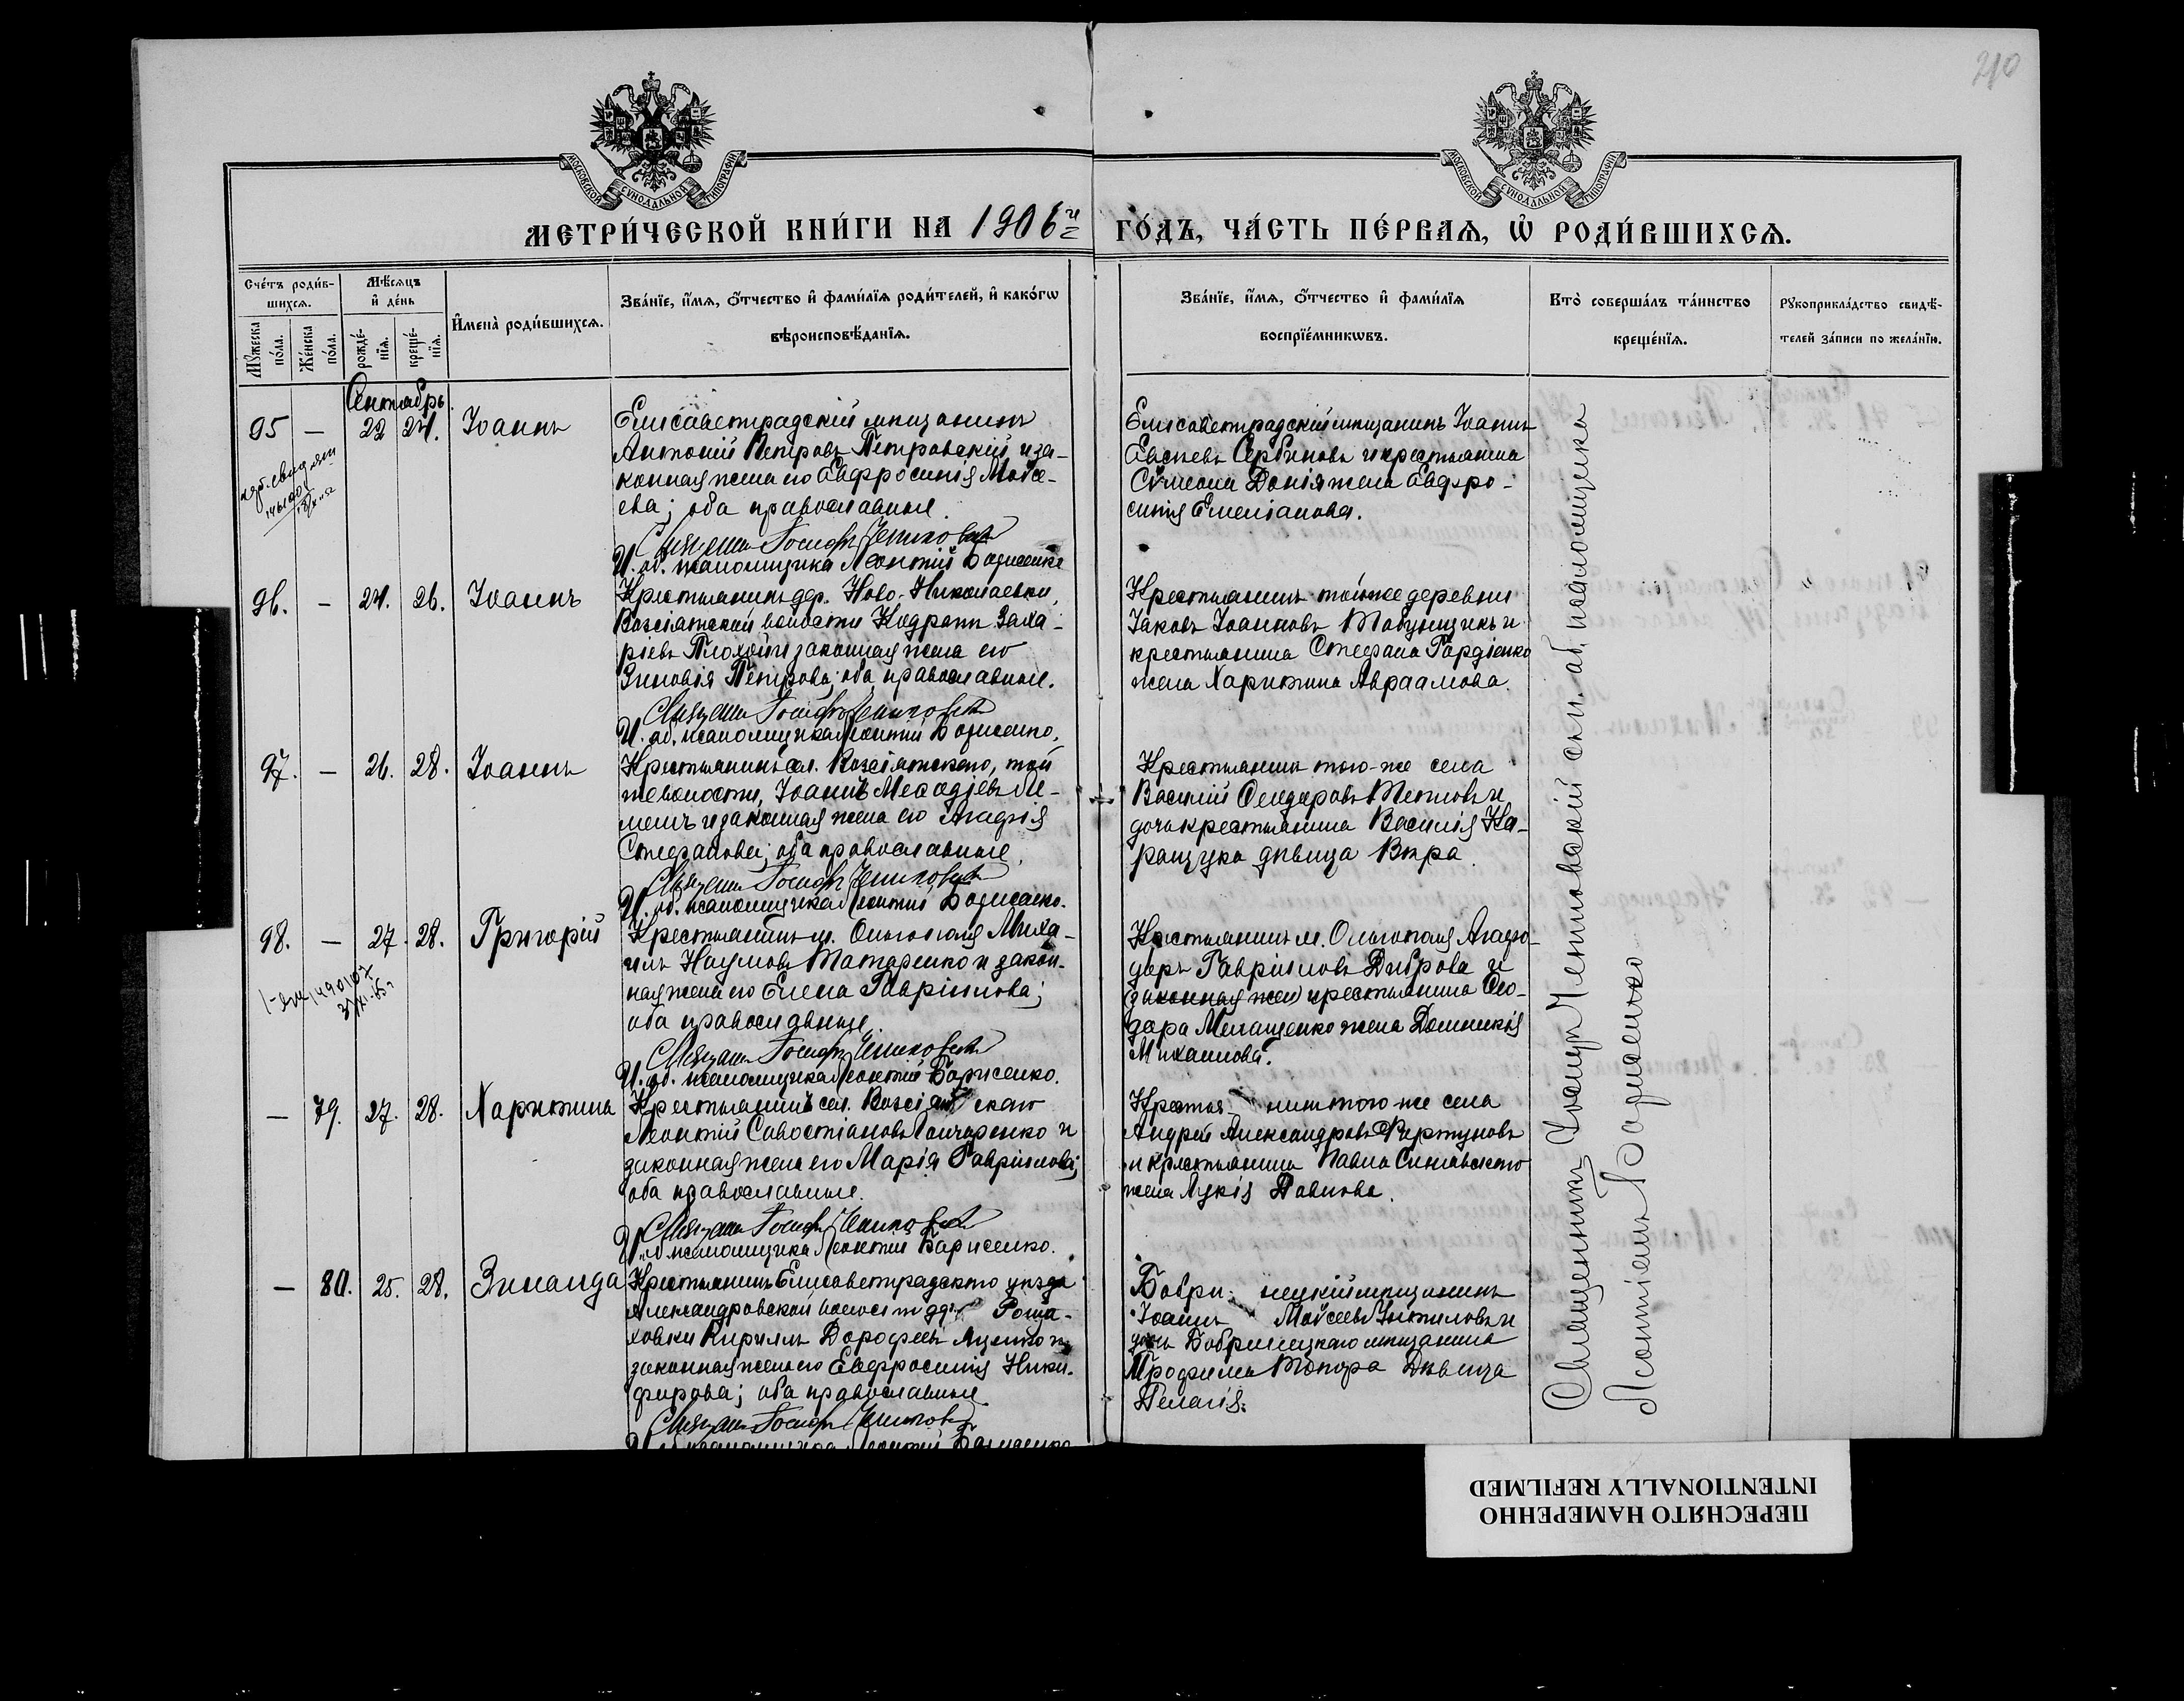 210
МОСКОВСКОЙ СѴНОДАЛЬНОЙ ТИПОГРАФІИ
МОСКОВСКОЙ СѴНОДАЛЬНОЙ ТИПОГРАФІИ
МЕТРИ́ЧЕСКОЙ КНИ́ГИ НА 1906й ГО́ДЪ, ЧА́СТЬ ПЕ́РВАѦ, Ѡ҆ РОДИ́ВШИХСѦ.
Сче́тъ роди́в-
шихсѧ.
Мꙋ́жеска по́ла.
Же́нска по́ла.
Мѣ́сѧцъ
и҆ де́нь
рожде́-
нїѧ.
креще́-
нїѧ.
И҆мена̀ роди́вшихсѧ.
Зва́нїе, и҆́мѧ, ѻ҆́тчество и҆ фами́лїѧ роди́телей, и҆ како́гѡ
вѣроисповѣ́данїѧ.
Зва́нїе, и҆́мѧ, ѻ҆́тчество и҆ фами́лїѧ
воспрїе́мникѡвъ.
Кто̀ соверша́лъ та́инство
креще́нїѧ.
Рꙋкоприкла́дство свидѣ́-
телей за́писи по жела́нїю.
Сентябрь.
95 — 22 24. Іоаннъ
Елисаветградскій мѣщанинъ
Антоній Петровъ Петровскій и за-
конная жена его Евфросинія Мойсе-
ева; оба православные.
Священникъ Іосифъ
И. об. псаломщика Леонтій Борисенко
Елисаветградскій мѣщанинъ Іоаннъ
Евсіевъ Сербиновъ и крестьянина
Сѵмеона Донія жена Евфро-
синія Емеліанова.
96. — 24. 26. Іоаннъ
Крестьянинъ дер. Ново-Николаевки,
Возсіятской волости Кодратъ Заха-
ріевъ Плохой и законная жена его
Зиновія Петрова; оба православные.
Священникъ Іосифъ
И. об. псаломщика Леонтій Борисенко.
Крестьянинъ той-же деревни
Іаковъ Іоанновъ Табунщикъ и
крестьянина Стефана Гордіенко
жена Харитина Авраамова.
97. — 26. 28. Іоаннъ
Крестьянинъ сел. Возсіятскаго, той
же волости, Іоаннъ Меѳодіевъ Ле-
мешъ и законная жена его Агафія
Стефанова; оба православные.
Священникъ Іосифъ
И. об. псаломщика Леонтій Борисенко.
Крестьянинъ того-же села
Василій Ѳеодоровъ и
дочь крестьянина Василія Ка-
ращука дѣвица Вѣра.
98. — 27. 28. Григорій
Крестьянинъ м. Ольгополя Миха-
илъ Наумовъ Татаренко и закон-
ная жена его Елена Гавріилова;
оба православные.
Священникъ Іосифъ
И. об. псаломщика Леонтій Борисенко.
Крестьянинъ м. Ольгополя Агафо-
доръ Гавріиловъ Диброва и
(законная жен) крестьянина Ѳео-
дора Мелащенко жена Домникія
Михаилова.
— 79. 27. 28. Харитина
Крестьянинъ сел. Возсіятскаго
Леонтій Савостіановъ Гончаренко и
законная жена его Марія Гавріилова;
оба православные.
Священникъ Іосифъ
И. об. псаломщика Леонтій Борисенко.
Крестьянинъ того же села
Андрей Александровъ Фортуновъ
и крестьянина Павла Синявского
жена Лукія Павлова.
— 80. 25. 28. Зинаида
Крестьянинъ Елисаветградскаго уѣзда
Александровской волости дер. Роща-
ховки Кириллъ Дорофеевъ Луценко и
законная жена его Евфросинія Ники-
форова; оба православные
Священникъ Іосифъ
И. об. псаломщика Леонтій Борисенко
Бобринецкій мѣщанинъ
Іоаннъ Мойсеевъ и
дочь Бобринецкаго мѣщанина
Трофима Топора дѣвица
Пелагія.
Священникъ Іосифъ съ и. об. псаломщика
Леонтіемъ Борисенко
ПЕРЕСНЯТО НАМЕРЕННО
INTENTIONALLY REFILMED